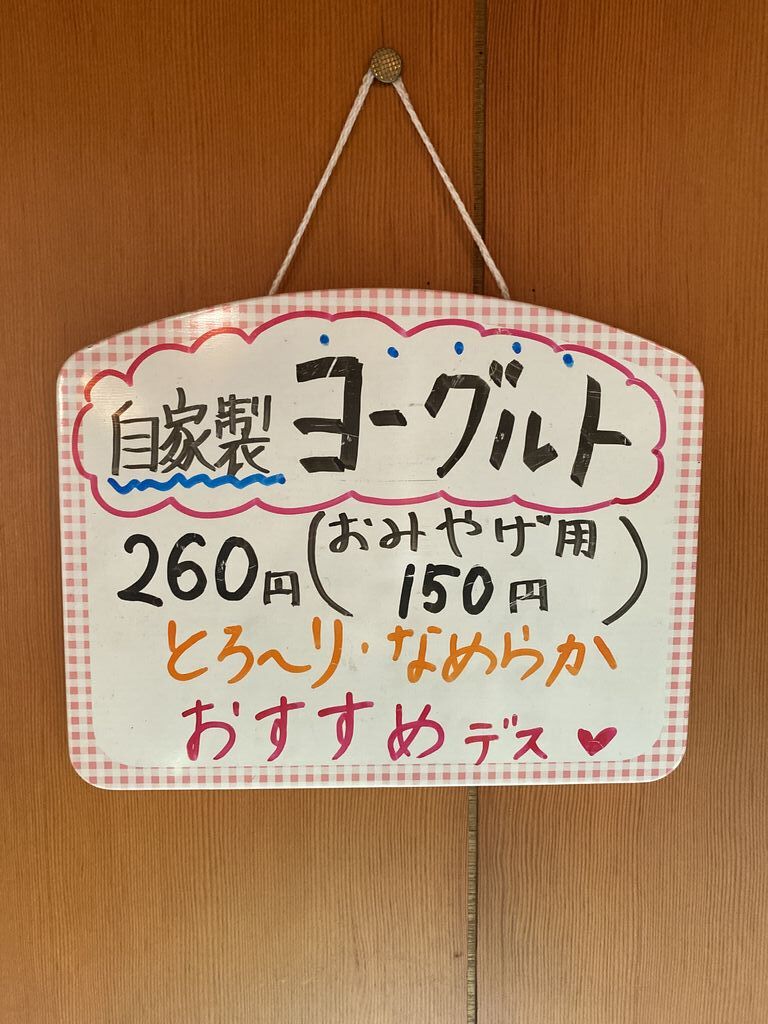 自家製 ヨーグルト
260円(おみやげ用
150円)
とろ~り・なめらか
おすすめデス♥